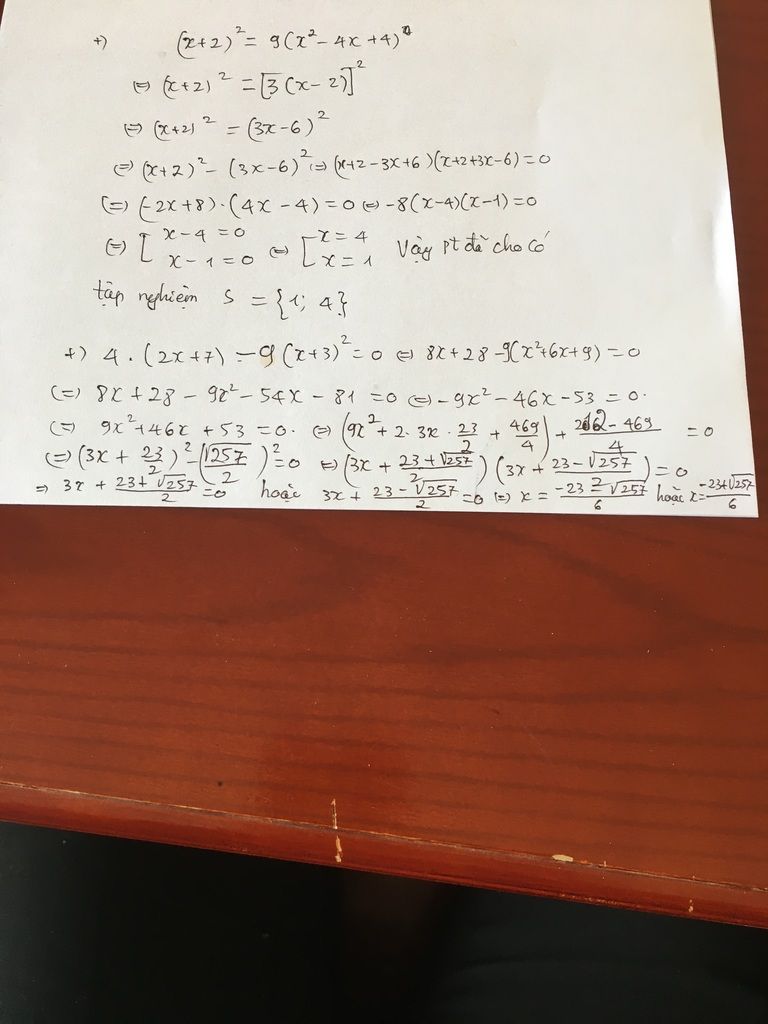 +) (x+2)² = 9(x² - 4x +4)
⇔ (x+2)² = [3(x-2)]²
⇔ (x+2)² = (3x-6)²
⇔ (x+2)² - (3x-6)² ⇔ (x+2-3x+6)(x+2+3x-6) = 0
⇔ (-2x+8)·(4x-4) = 0 ⇔ -8(x-4)(x-1) = 0
⇔ [ x-4 = 0 ⇔ [ x = 4 Vậy pt đã cho có
x-1 = 0 x = 1
tập nghiệm S = {1; 4}
+) 4·(2x+7) - 9(x+3)² = 0 ⇔ 8x+28-9(x²+6x+9) = 0
⇔ 8x+28 - 9x² - 54x - 81 = 0 ⇔ -9x² - 46x - 53 = 0.
⇔ 9x² + 46x + 53 = 0. ⇔ (9x² + 2·3x·23/2 + 469/4) + 212-469/4 = 0
⇔ (3x + 23/2)² - (√257/2)² = 0 ⇔ (3x + 23+√257/2)(3x + 23-√257/2) = 0
⇔ 3x + 23+√257/2 = 0 hoặc 3x + 23-√257/2 = 0 ⇔ x = -23-√257/6 hoặc x = -23+√257/6